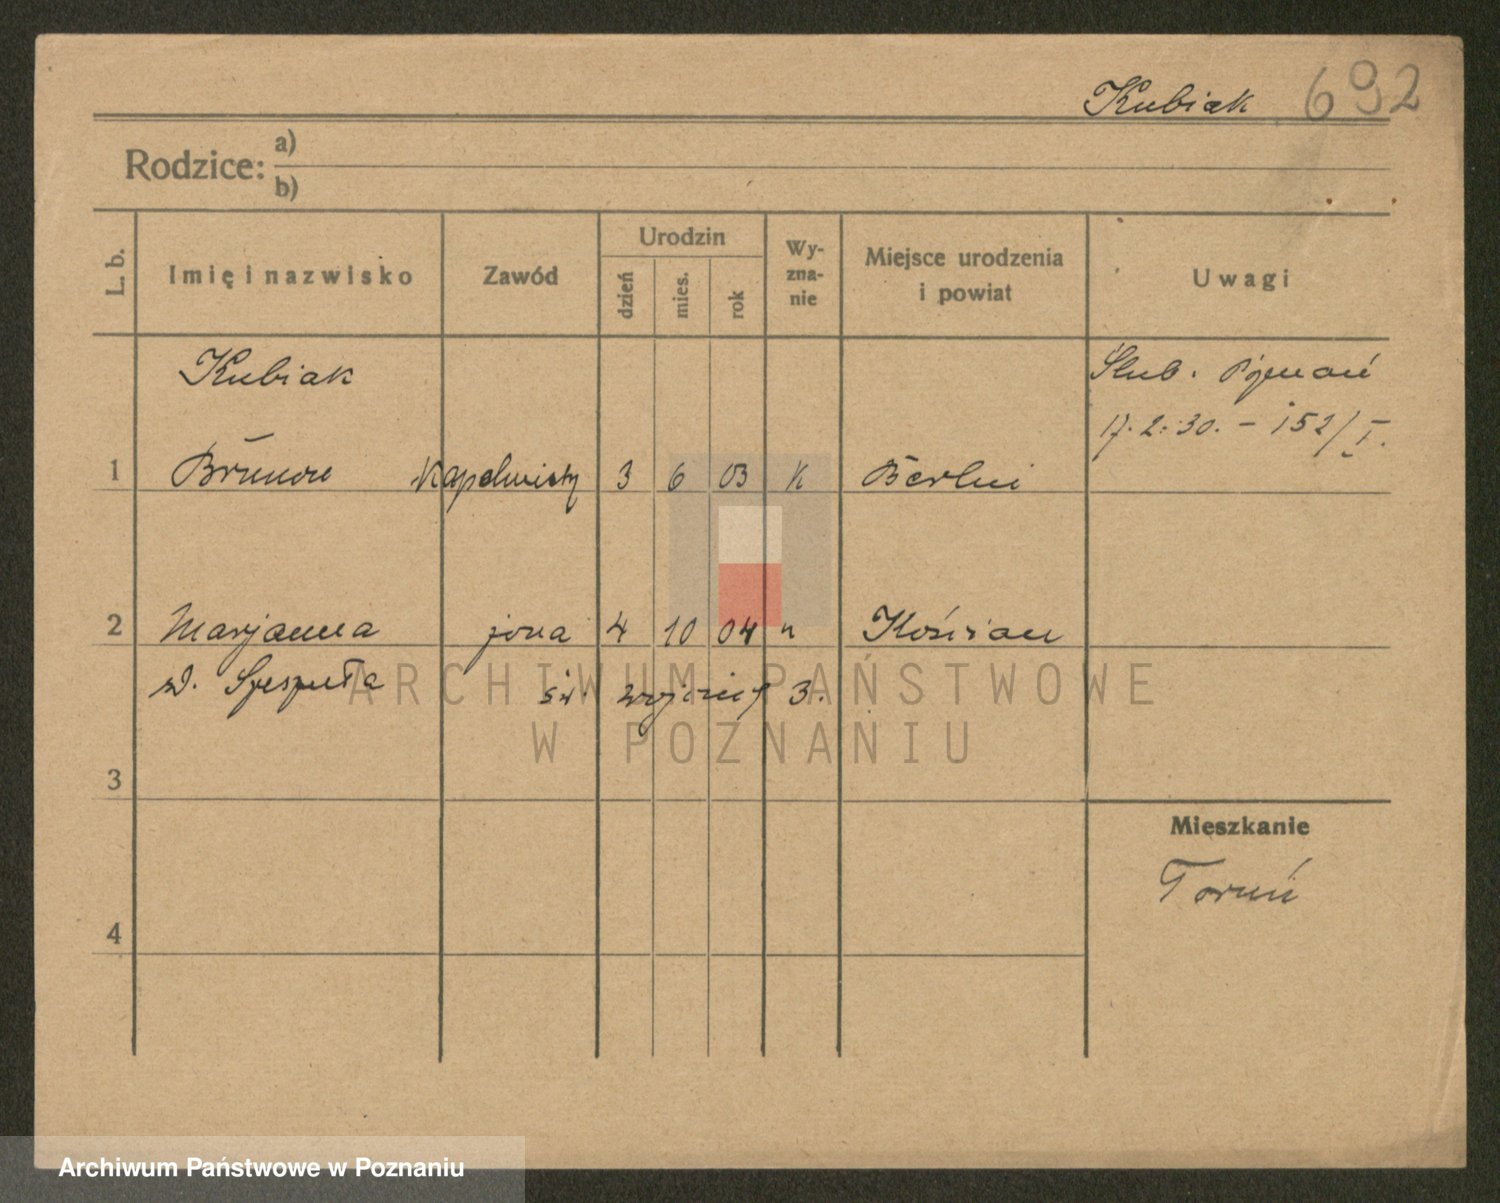 Kubiak 692
Rodzice: a)
b)
L. b. Imię i nazwisko Zawód Urodzin dzień mies. rok Wy-zna-nie Miejsce urodzenia i powiat Uwagi
Kubiak Ślub. Poznań
17.2.30. - 152/I.
1 Brunon Kapelmistrz 3 6 03 K Berlin
2 Marjanna żona 4 10 04 " Kościan
św. Wojciech 3.
3
Mieszkanie
Toruń
4
ARCHIWUM PAŃSTWOWE
W POZNANIU
Archiwum Państwowe w Poznaniu